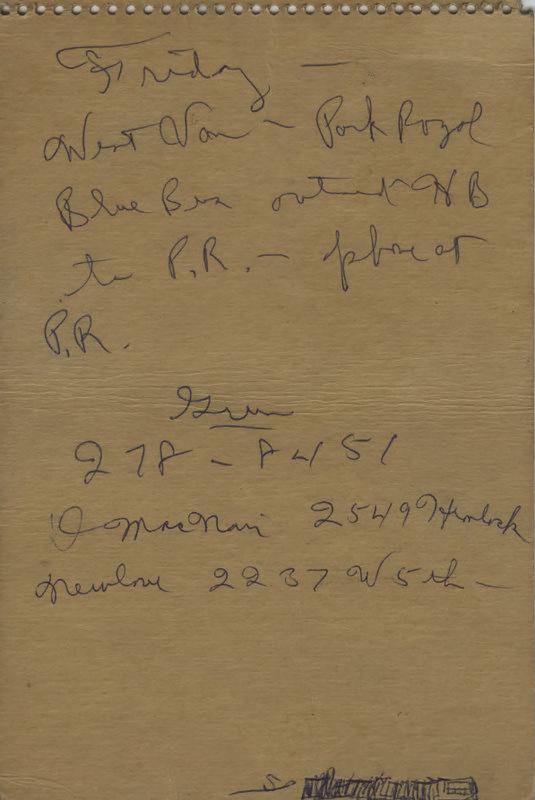 Friday —
West Van — Park Royal
Blue Bus outside HB
to P.R. — phone at
P.R.
278 - 8451
MacNair 2549 Hemlock
Newlove 2237 W 5th —